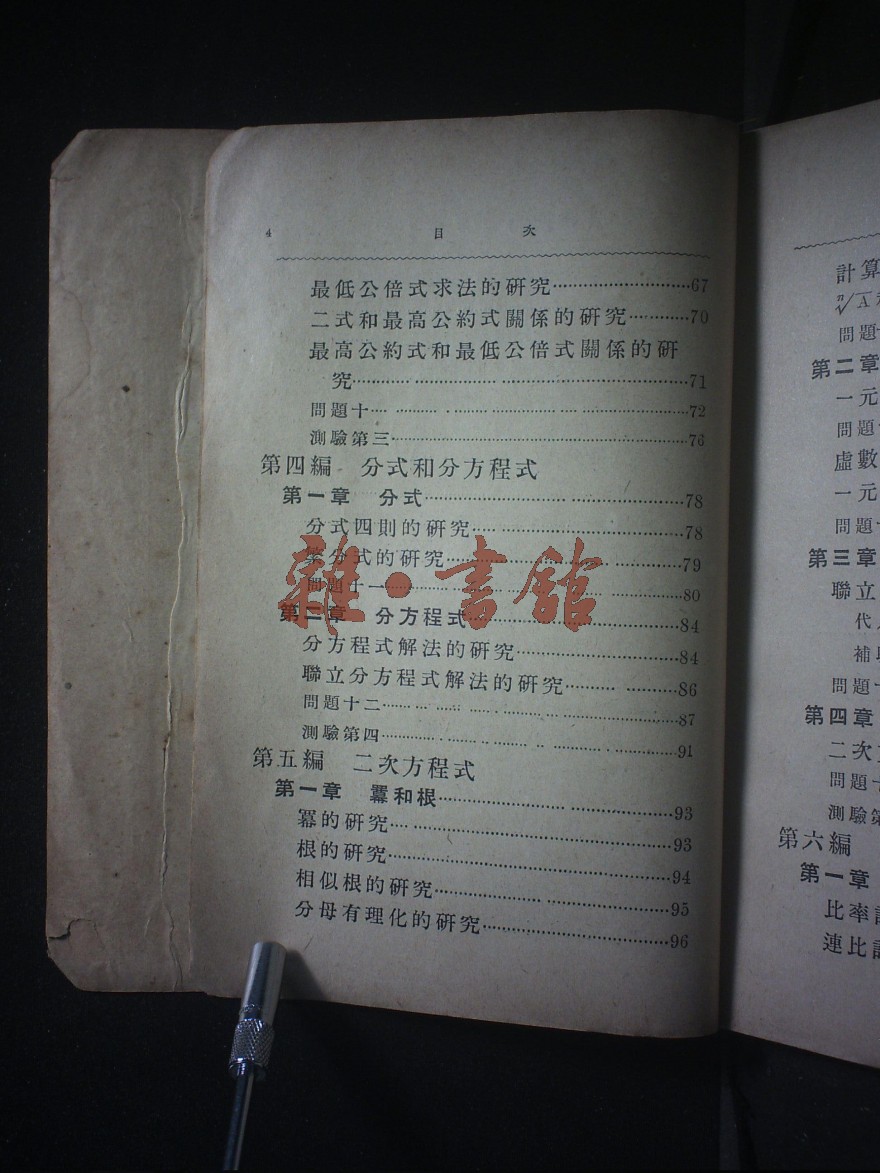 4 目 次
最低公倍式求法的研究……………………67
二式和最高公約式關係的研究…………70
最高公約式和最低公倍式關係的研
究……………………………………………71
問題十………………………………………72
測驗第三……………………………………76
第四編 分式和分方程式
第一章 分式………………………………78
分式四則的研究……………………………78
繁分式的研究………………………………79
問題十一……………………………………80
第二章 分方程式…………………………84
分方程式解法的研究………………………84
聯立分方程式解法的研究…………………86
問題十二……………………………………87
測驗第四……………………………………91
第五編 二次方程式
第一章 羃和根……………………………93
羃的研究……………………………………93
根的研究……………………………………94
相似根的研究………………………………95
分母有理化的研究…………………………96
雜·書舘
計算
ⁿ√A
問題
第二章
一元
問題
虛數
一元
問題
第三章
聯立
代
補
問題
第四章
二次
問題
測驗
第六編
第一章
比率
連比